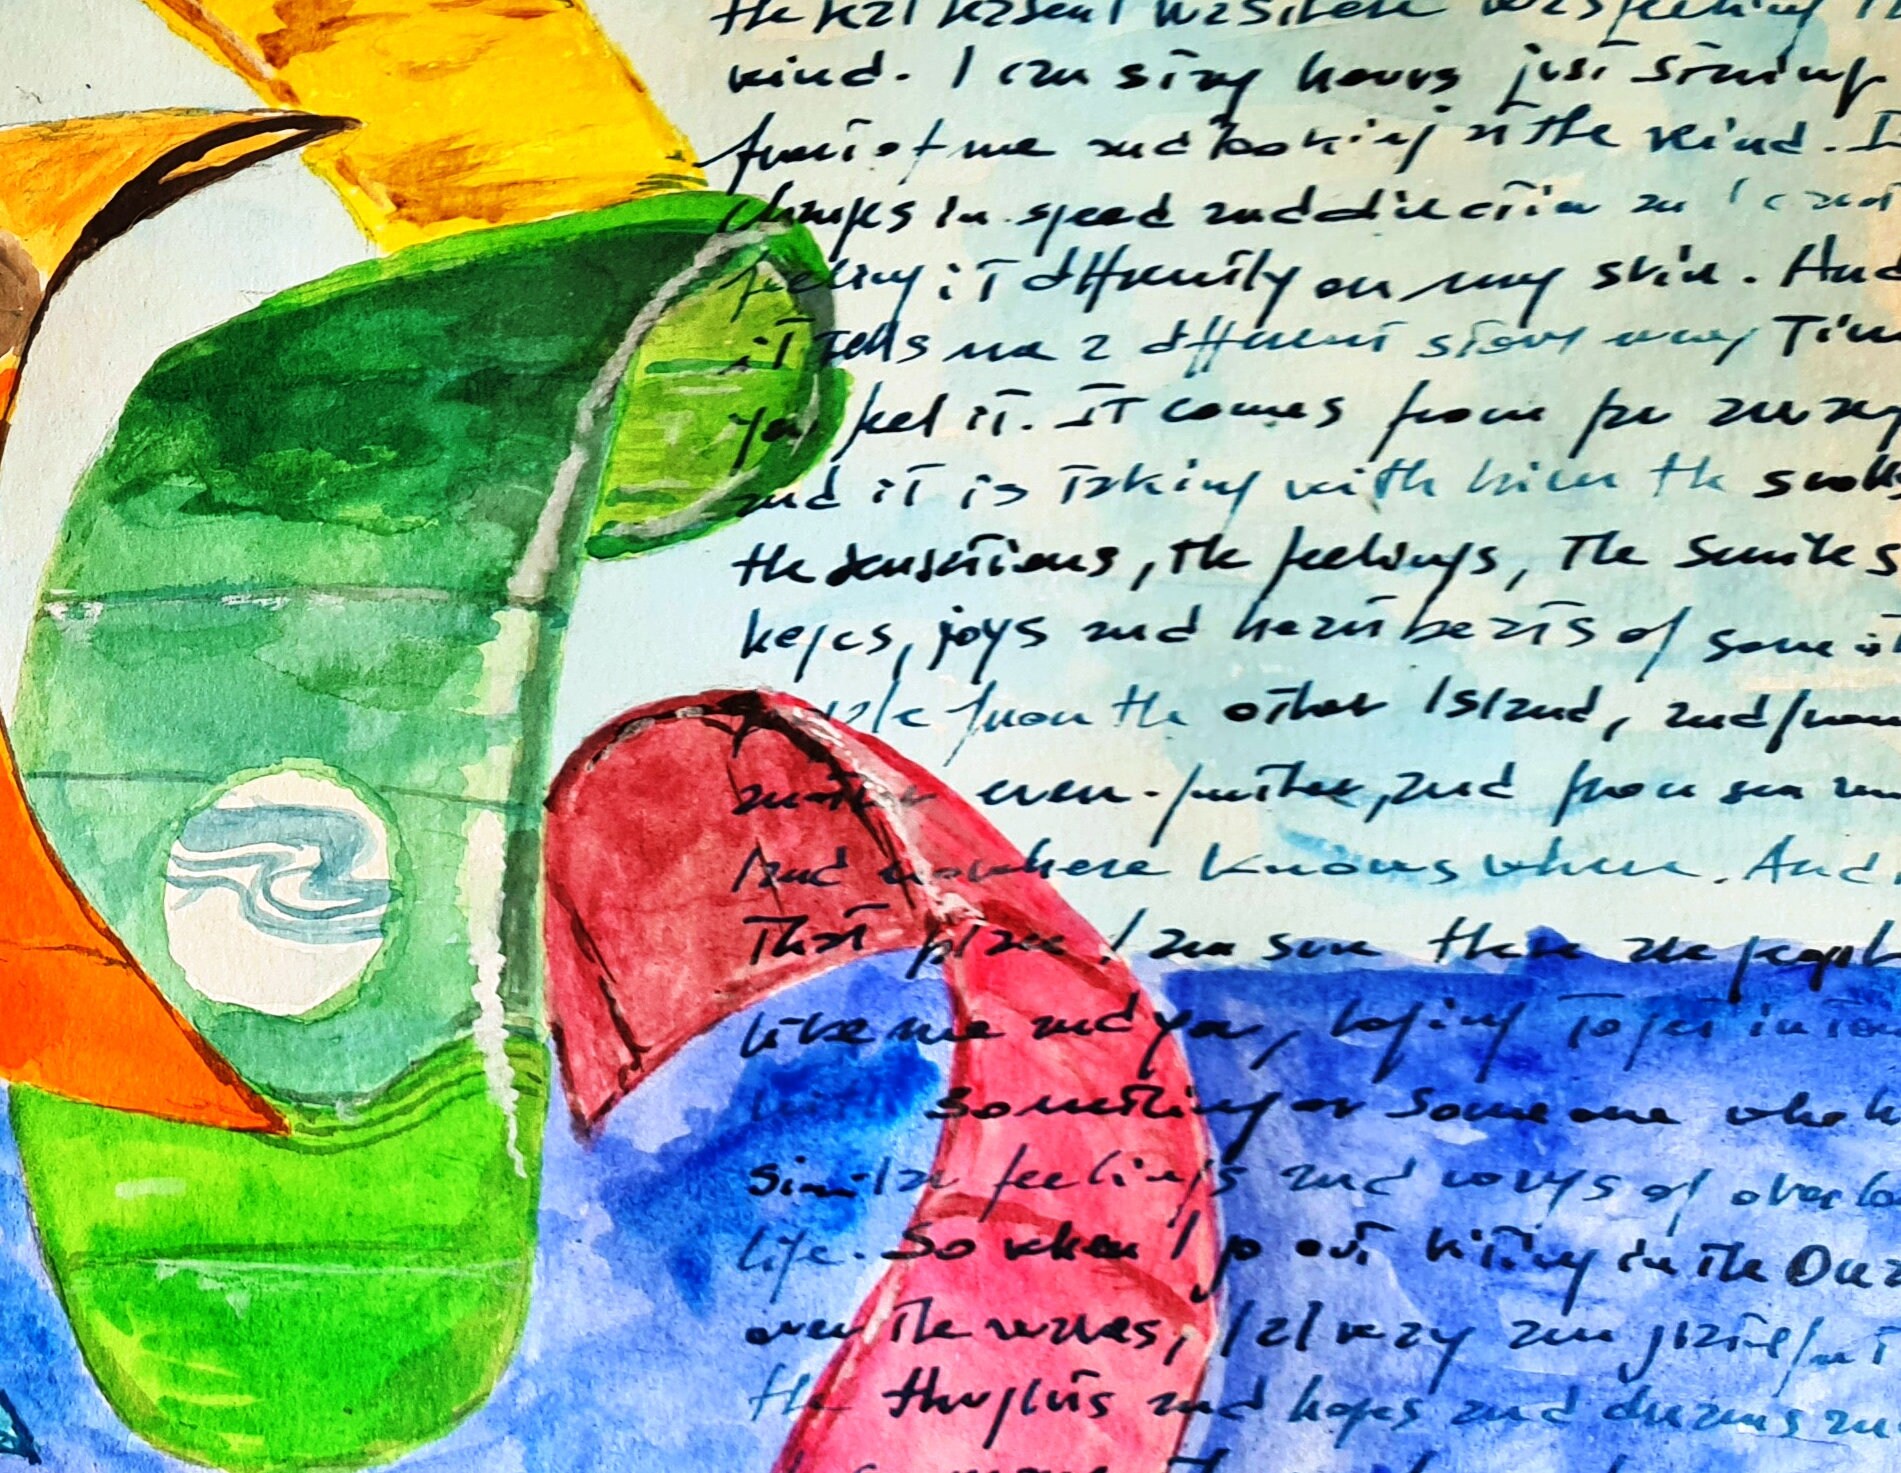 the real reason I was there was feeling the
wind. I can stay hours just standing
front of me and looking at the wind. It
changes in speed and direction and I can
feeling it differently on my skin. And
it tells me a different story every Tim
you feel it. It comes from far away
and it is taking with him the smells
the sensations, the feelings, the smiles
hopes, joys and heartbeats of some
people from the other Island, and from
another even further, and from sea and
land nowhere knows where. And
That place I am sure there are people
like me and you, hoping to get in
something or someone who
similar feelings and ways of
life. So when I go out kiting in the
over the waves, I always am grateful
the thoughts and hopes and dreams